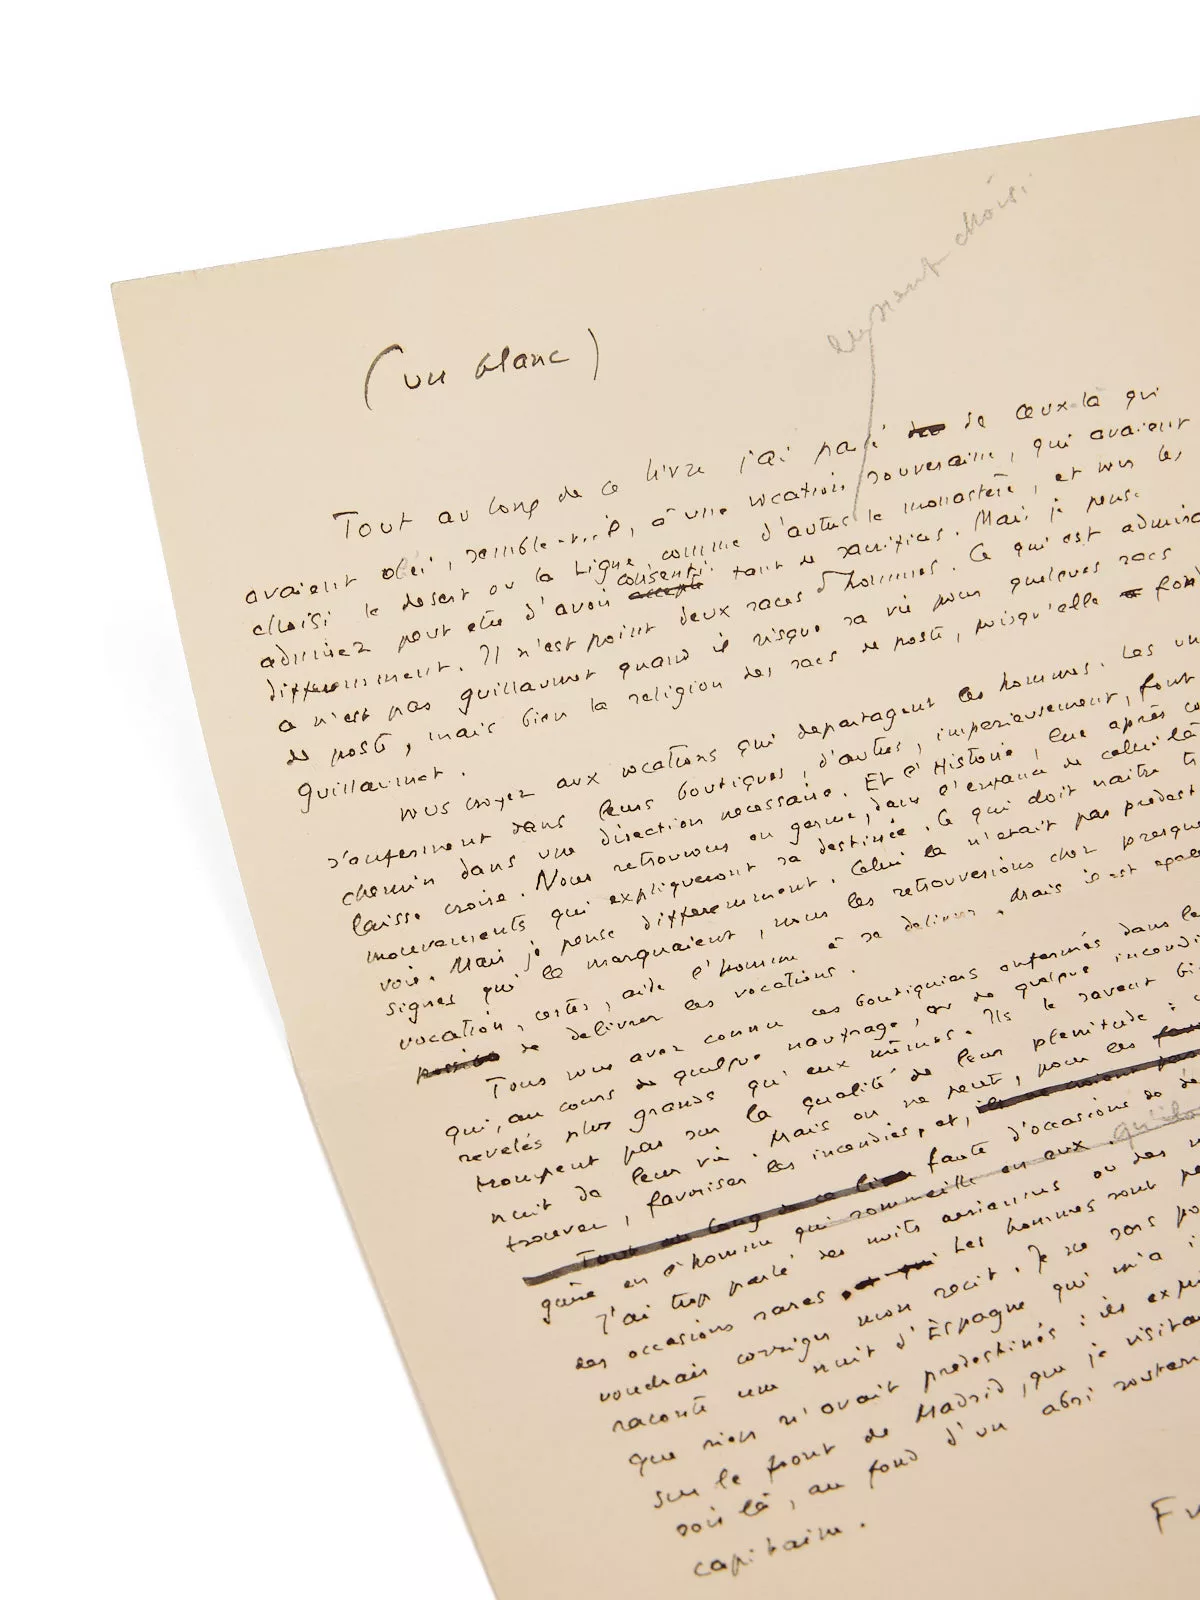 choisi
(un blanc)
Tout au long de ce livre j'ai parlé de ceux là qui
avaient obéi, semble-t-il, à une vocation souveraine, qui avaient
choisi le desert ou la Ligne, comme d'autres le monastère, et vous les
admirez peut etre d'avoir accepté consenti tant de sacrifices. Mais je pense
differemment. Il n'est point deux races d'hommes. Ce qui est admira
a n'est pas Guillaumet quand il risque sa vie pour quelques sacs
de poste, mais bien la religion des sacs de poste, puisqu'elle a
Guillaumet.
Vous croyez aux vocations qui departagent les hommes. Les un
s'enferment dans leurs boutiques, d'autres, imperieusement, font
chemin dans une direction necessaire. Et l'Histoire, lue après co
laisse croire. Nous retrouvons en germe, dans l'enfance de celui là
mouvements qui expliqueront sa destinée. Ce qui doit naitre
voie. Mais je pense differemment. Celui la n'etait pas predest
signes qui le marquaient, nous les retrouverions chez presque
vocation, certes, aide l'homme à se delivrer. Mais il est egale
de delivrer les vocations.
Tous vous avez connu ces boutiquiers enfermés dans le
qui, au cours de quelque naufrage, ou de quelque incendi
revelés plus grands qu'eux mêmes. Ils le savent bi
trompent pas sur la qualité de leur plenitude :
nuit de leur vie. Mais on ne peut, pour les
trouver, favoriser les incendies, et,
Tout au long de ce livre faute d'occasions de de
guère en l'homme qui sommeille en eux. qu'il
J'ai trop parlé des nuits aeriennes ou des
des occasions rares, et qui Les hommes sont
voudrais corriger mon recit. Je ne sors
raconté une nuit d'Espagne qui m'a
que rien n'avait predestinés :
sur le front de Madrid, que je visita
soir là, au fond d'un abri souterr
capitaine.